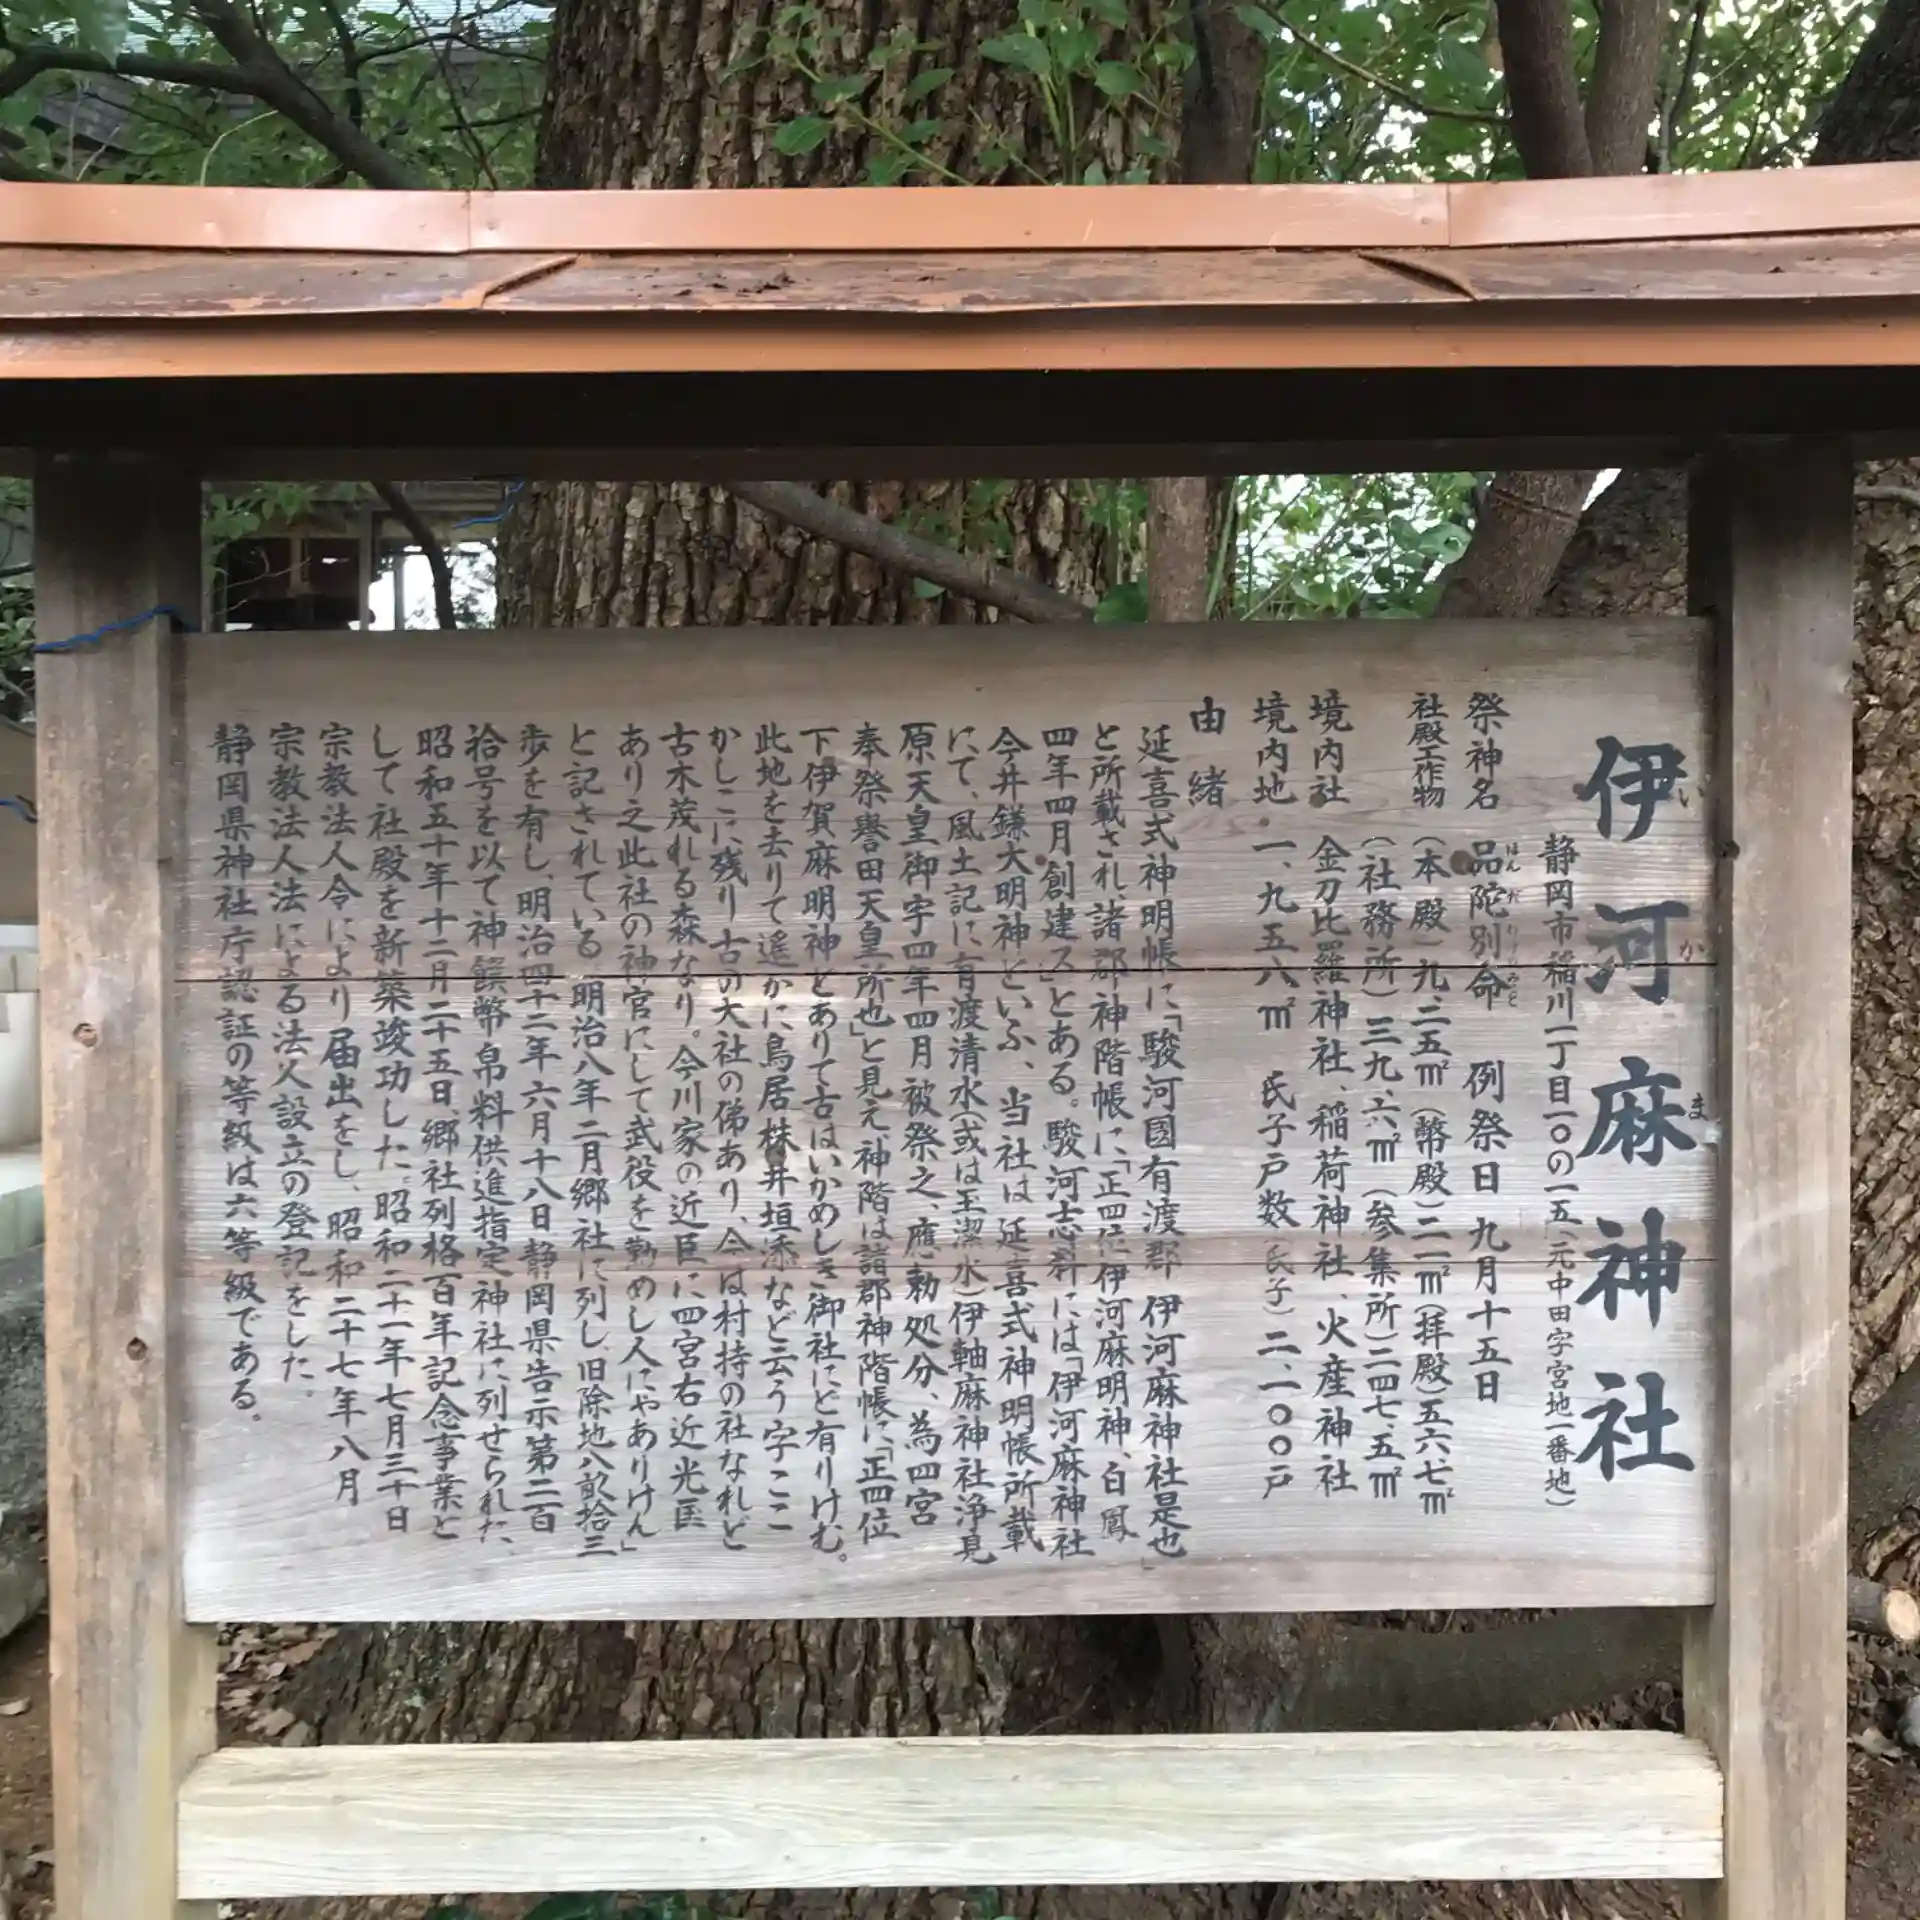 伊河麻神社
いかま
静岡市稲川一丁目一〇の一五(元中田字宮地一番地)
祭神名 品陀別命 例祭日 九月十五日
ほんだわけのみこと
社殿工作物 (本殿)九、二五㎡ (幣殿)二一㎡ (拝殿)五六、七㎡
(社務所)三九、六㎡ (参集所)二四七、五㎡
境内社 金刀比羅神社、稲荷神社、火産神社
境内地 一、九五八㎡ 氏子戸数(氏子)二、一〇〇戸
由緒
延喜式神明帳に「駿河國有渡郡 伊河麻神社是也」
と所載され、諸郡神階帳に「正四位伊河麻明神、白鳳
四年四月創建ス」とある。駿河志料には「伊河麻神社
今井鎌大明神といふ、当社は延喜式神明帳所載
にて、風土記に有渡清水(或は玉潔水)伊軸麻神社浄見
原天皇御宇四年四月被祭之、應勅処分、為四宮
奉祭譽田天皇所也」と見え、神階は諸郡神階帳に「正四位
下伊賀麻明神とありて古はいかめしき御社にど有りけむ。
此地を去りて遙かに鳥居株井垣添など云う字ここ
かしこに残り古の大社の俤あり、今は村持の社なれど
古木茂れる森なり。今川家の近臣に四宮右近光匡
あり之此社の神官にして武役を勤めし人にやありけん」
と記されている。明治八年二月郷社に列し、旧除地八畝拾三
歩を有し、明治四十二年六月十八日静岡県告示第二百
拾号を以て神饌幣帛料供進指定神社に列せられた、
昭和五十年十二月二十五日、郷社列格百年記念事業と
して社殿を新築竣功した。昭和二十一年七月三十日
宗教法人令により届出をし、昭和二十七年八月
宗教法人法による法人設立の登記をした。
静岡県神社庁認証の等級は六等級である。